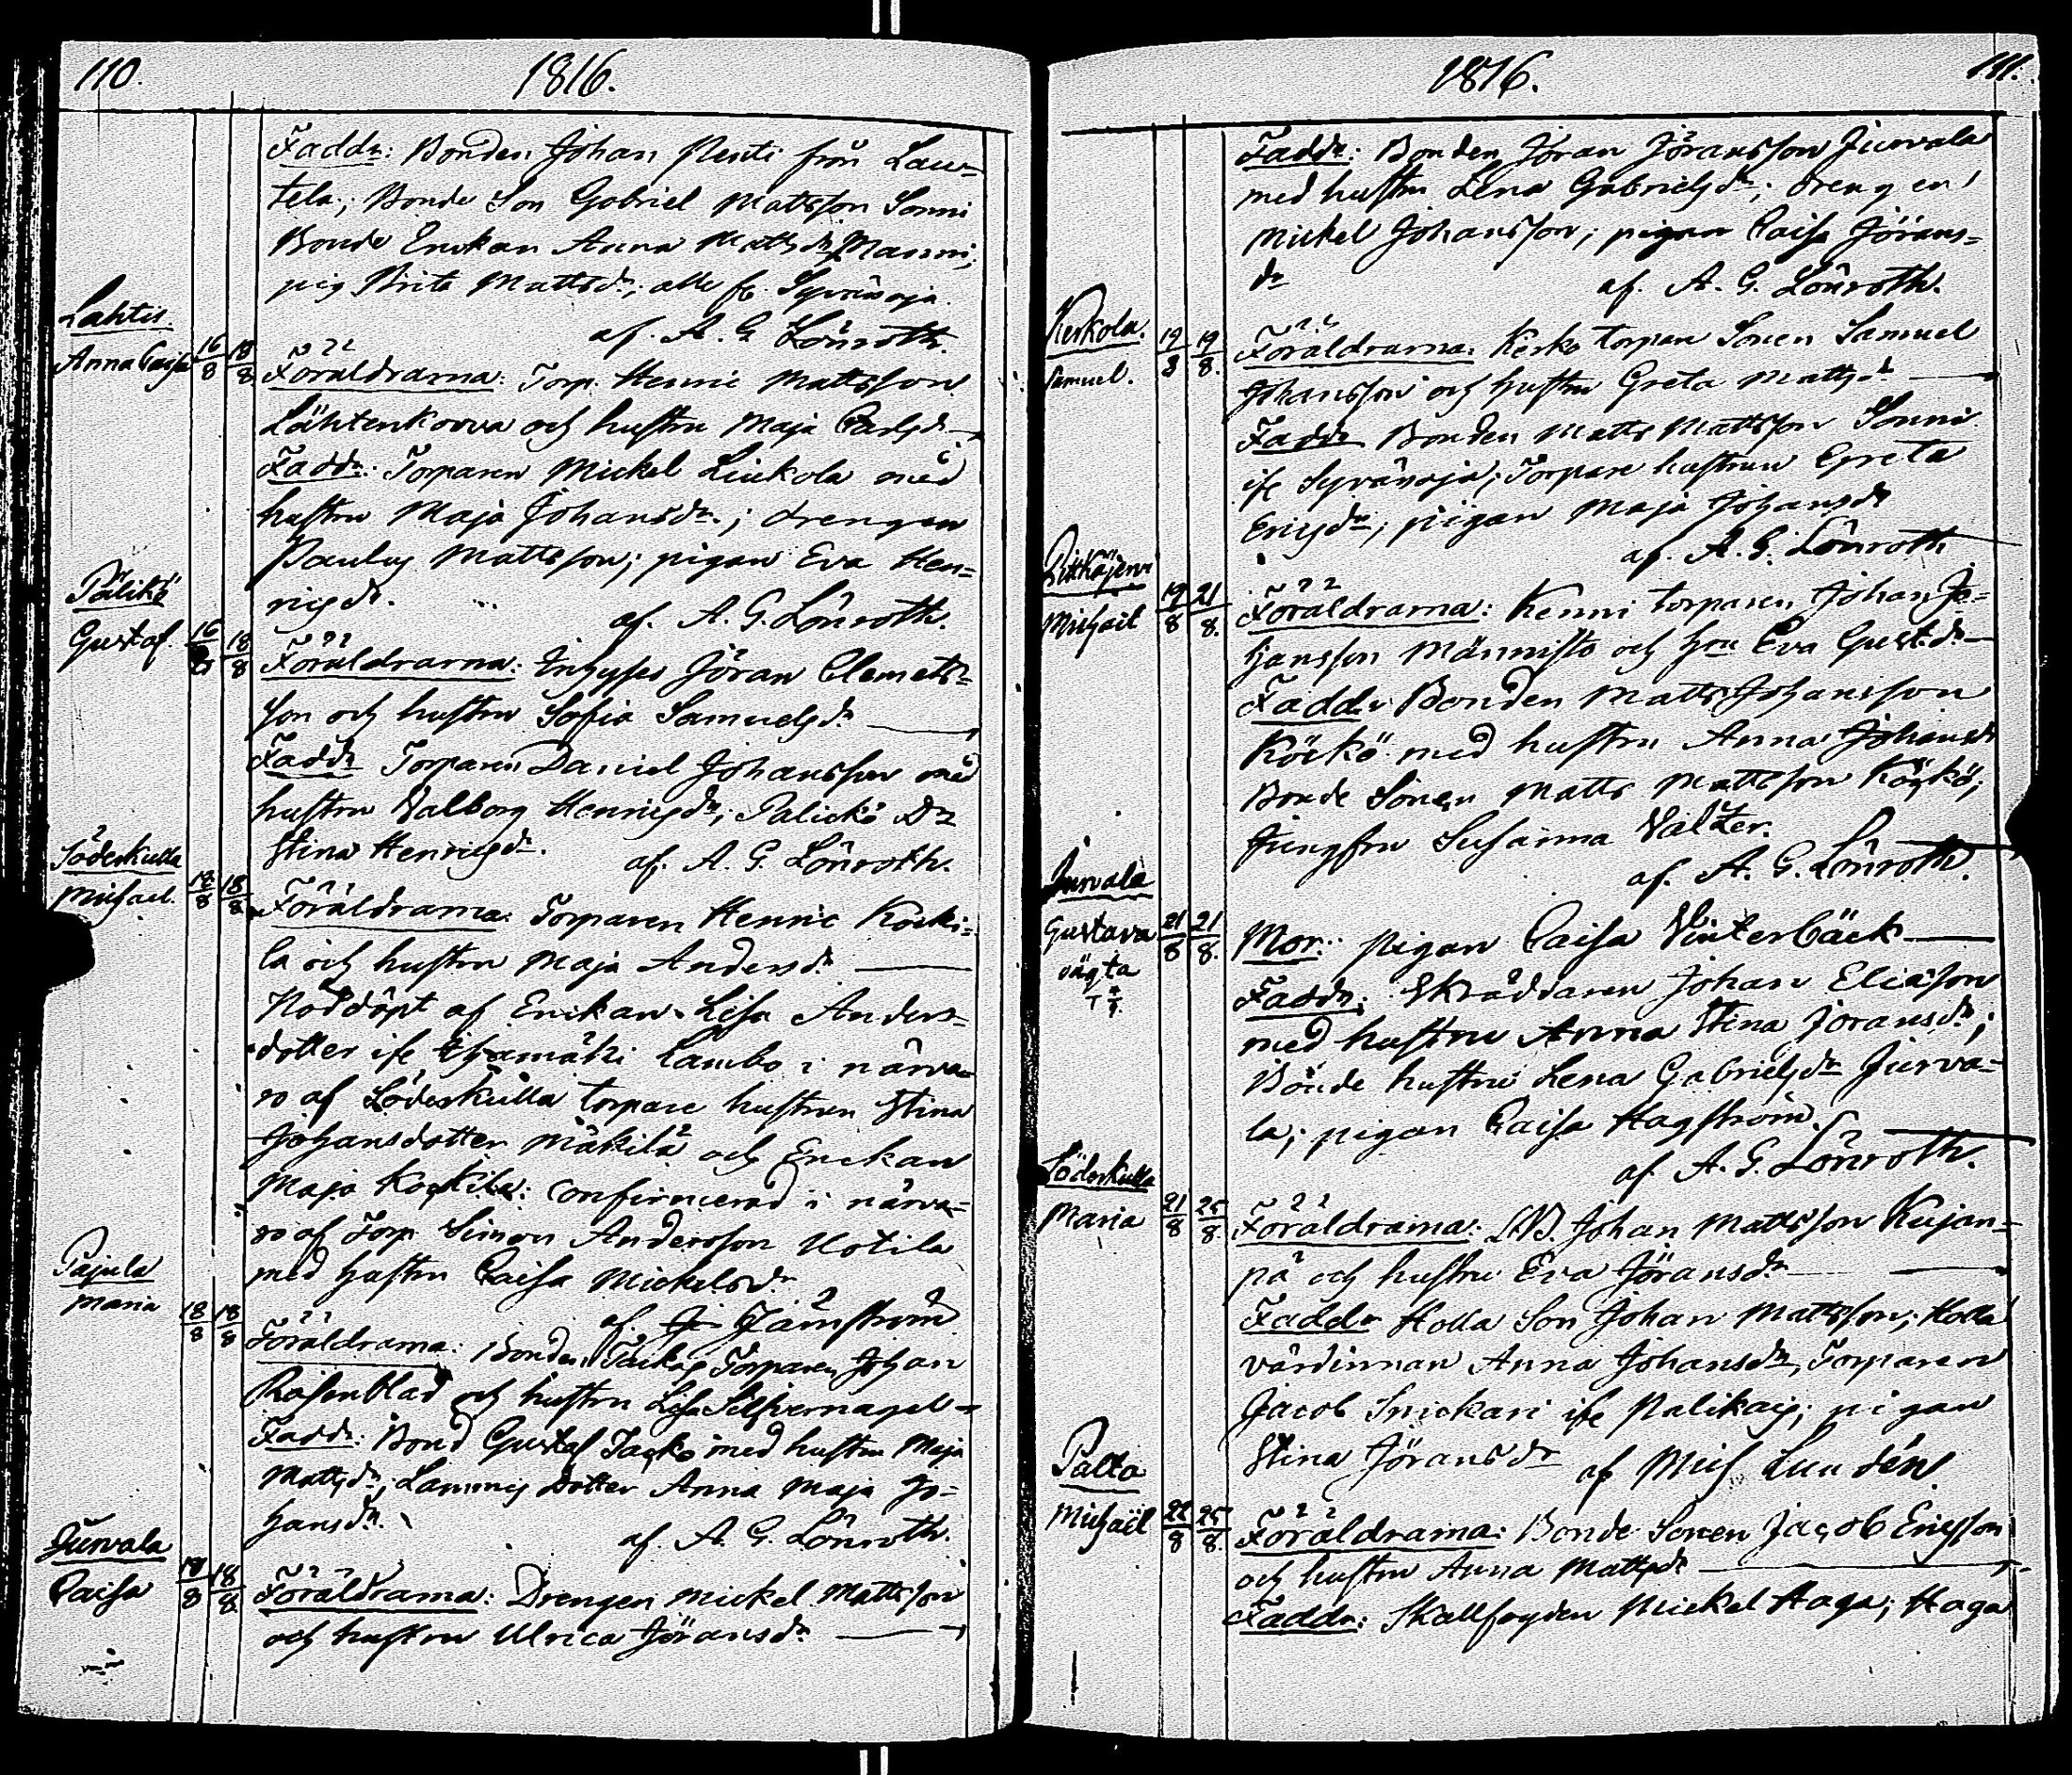 110.
1816.
Faddr: Bonden Johan Penti från Lau=
tela; Bonde Son Gabriel Mattsson Sonni
Bonde Enckan Anna Mattsdr Manni;
pig Brita Mattsdr; alle fr. Syvänoja.
af. A. G. Lönroth.
Lahtis.
Anna Caisa
16/8 18/8
Föräldrarna: Torp. Henric Mattsson
Lähtenkorva och hustru Maja Carlsdr
Faddr: Torparen Mickel Liukola med
hustru Maja Johansdr.; drengen
Paulus Mattsson; pigan Eva Hen=
ricsdr.
af. A. G. Lönroth.
Pälikö
Gustaf.
16/8 18/8
Föräldrarna: Inhyses Jöran Clemets=
son och hustru Sofia Samuelsdr
Faddr Torparen Daniel Johansson med
hustru Valborg Henricsdr; Palickö Dr
Stina Henricsdr.
af. A. G. Lönroth.
Söderkulla
Michael.
18/8 18/8
Föräldrarna: Torparen Henric Kocki=
la och hustru Maja Andersdr.
Nöddöpt af Enckan Lisa Anders=
dotter ifr. Lambo i närva=
ro af Söderkulla torpare hustrun Stina
Johansdotter Mäkilä och Enckan
Maja Kockila: confirmerad i närva=
ro af Torp. Simon Andersson Uotila
med hustru Caisa Mickelsdr
af. Jämström
Pajula
Maria
18/8 18/8
Föräldrarna: Bonden Torparen Johan
Rosenblad och hustru Lisa Silfvernagel
Faddr: Bond Gustaf Jacko med hustru Maja
Mattsdr; Lammis Dotter Anna Maja Jo=
hansdr.
af. A. G. Lönroth.
Jurvala
Caisa
18/8 18/8
Föräldrarna: Drengen Mickel Mattsson
och hustru Ulrica Jöransdr
1816.
111.
Faddr: Bonden Jöran Jöransson Jurvala
med hustru Lena Gabrielsdr; drengen
Mickel Johansson; pigan Caisa Jörans=
dr
af. A. G. Lönroth.
Kerkola.
Samuel.
19/8 19/8.
Föräldrarna: Kerko torpare Sonen Samuel
Johansson och hustru Greta Mattsdr
Faddr Bonden Matts Mattsson Sonni
ifr Syvänoja; Torpare hustrun Greta
Ericsdr; pigan Maja Johansdr
af. A. G. Lönroth
Pitkäjervi
Michael
19/8 21/8.
Föräldrarna: Kenni torparen Johan Jo=
hansson Männistö och hru Eva Gustdr
Faddr Bonden Matts Johansson
Köckö med hustru Anna Johansdr
Bonde Sonen Matts Mattsson Köykö;
Jungfru Susanna Valzer.
af. A. G. Lönroth.
Jurvala
Gustava
oägta
21/8 21/8.
Mor: pigan Caisa Vinterbäck
Faddr: Skräddaren Johan Eliasson
med hustru Anna Stina Jöransdr;
Bonde hustru Lena Gabrielsdr Jurva=
la; pigan Caisa Hagström.
af A. G. Lönroth.
Söderkulla
Maria
21/8 25/8.
Föräldrarna: Johan Mattsson Kujan=
pä och hustru Eva Jöransdr
Faddr Holla Son Johan Mattsson; Holla
värdinnan Anna Johansdr, Torparen
Jacob Snickari ifr Palikais; pigan
Stina Jöransdr
af Mich Lundén
Palta
Michaël
22/8 25/8.
Föräldrarna: Bonde Sonen Jacob Ericsson
och hustru Anna Mattsdr
Faddr: Skallfogden Mickel Haga; Haga